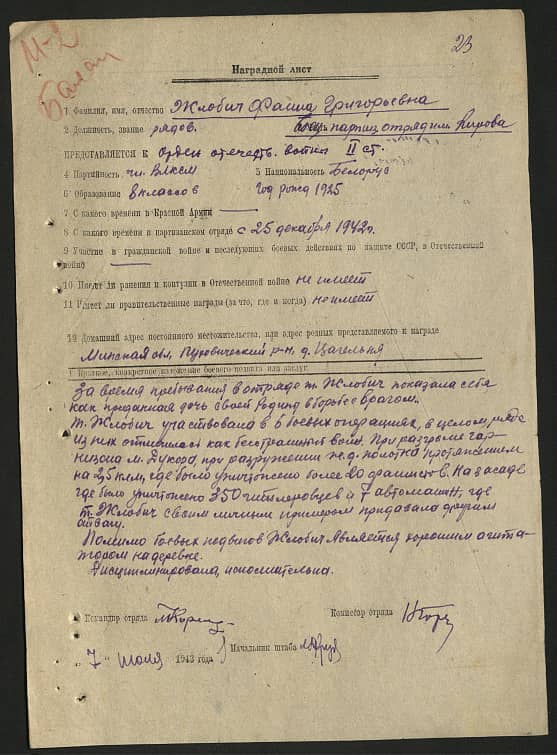 М-2
23
Наградной лист
1 Фамилия, имя, отчество Жлобич Фаина Григорьевна
2 Должность, звание рядов. боец партиз, отрядим Кирова
ПРЕДСТАВЛЯЕТСЯ К Орден отечеств. войны II ст.
4 Партийность чл. ВЛКСМ 5 Национальность Белорус
6 Образование 8 классов Год рожд 1925
7 С какого времени в Красной Армии —
8 С какого времени в партизанском отряде с 25 декабря 1942г.
9 Участие в гражданской войне и последующих боевых действиях по защите СССР, в Отечественной
войне —
10 Имеет ли ранения и контузии в Отечественной войне не имеет
11 Имеет ли правительственные награды (за что, где и когда) не имеет
12 Домашний адрес постоянного местожительства, или адрес родных представляемого к награде
Минская обл, Пуховический р-н, д. Цагельня
I Краткое, конкретное изложение боевого подвига или заслуг
За время пребывания в отряде т. Жлобич показала себя
как преданная дочь своей Родины в борьбе с врагом.
т. Жлобич участвовала в 6 боевых операциях, в целом, ряде
из них отличилась как бесстрашный воин. При разгроме гар-
низона м. Дукора, при разрушении ж.д. полотка протяжением
на 2,5 клм, где было уничтожено более 20 фашистов. На засаде
где было уничтожено 350 гитлеровцев и 7 автомашин, где
т. Жлобич своим личным примером придавала другим
отвагу.
Помимо боевых подвигов Жлобич является хорошим агита-
тором на деревне.
Дисциплинирована, исполнительна.
Командир отряда
Комиссар отряда
„7" июля 1943 года
Начальник штаба